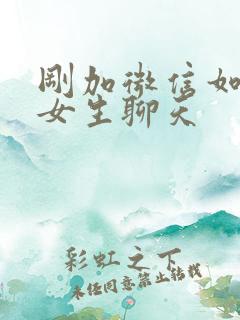 剛加微信如
女生聊天
彩虹之下
未经同意禁止转载